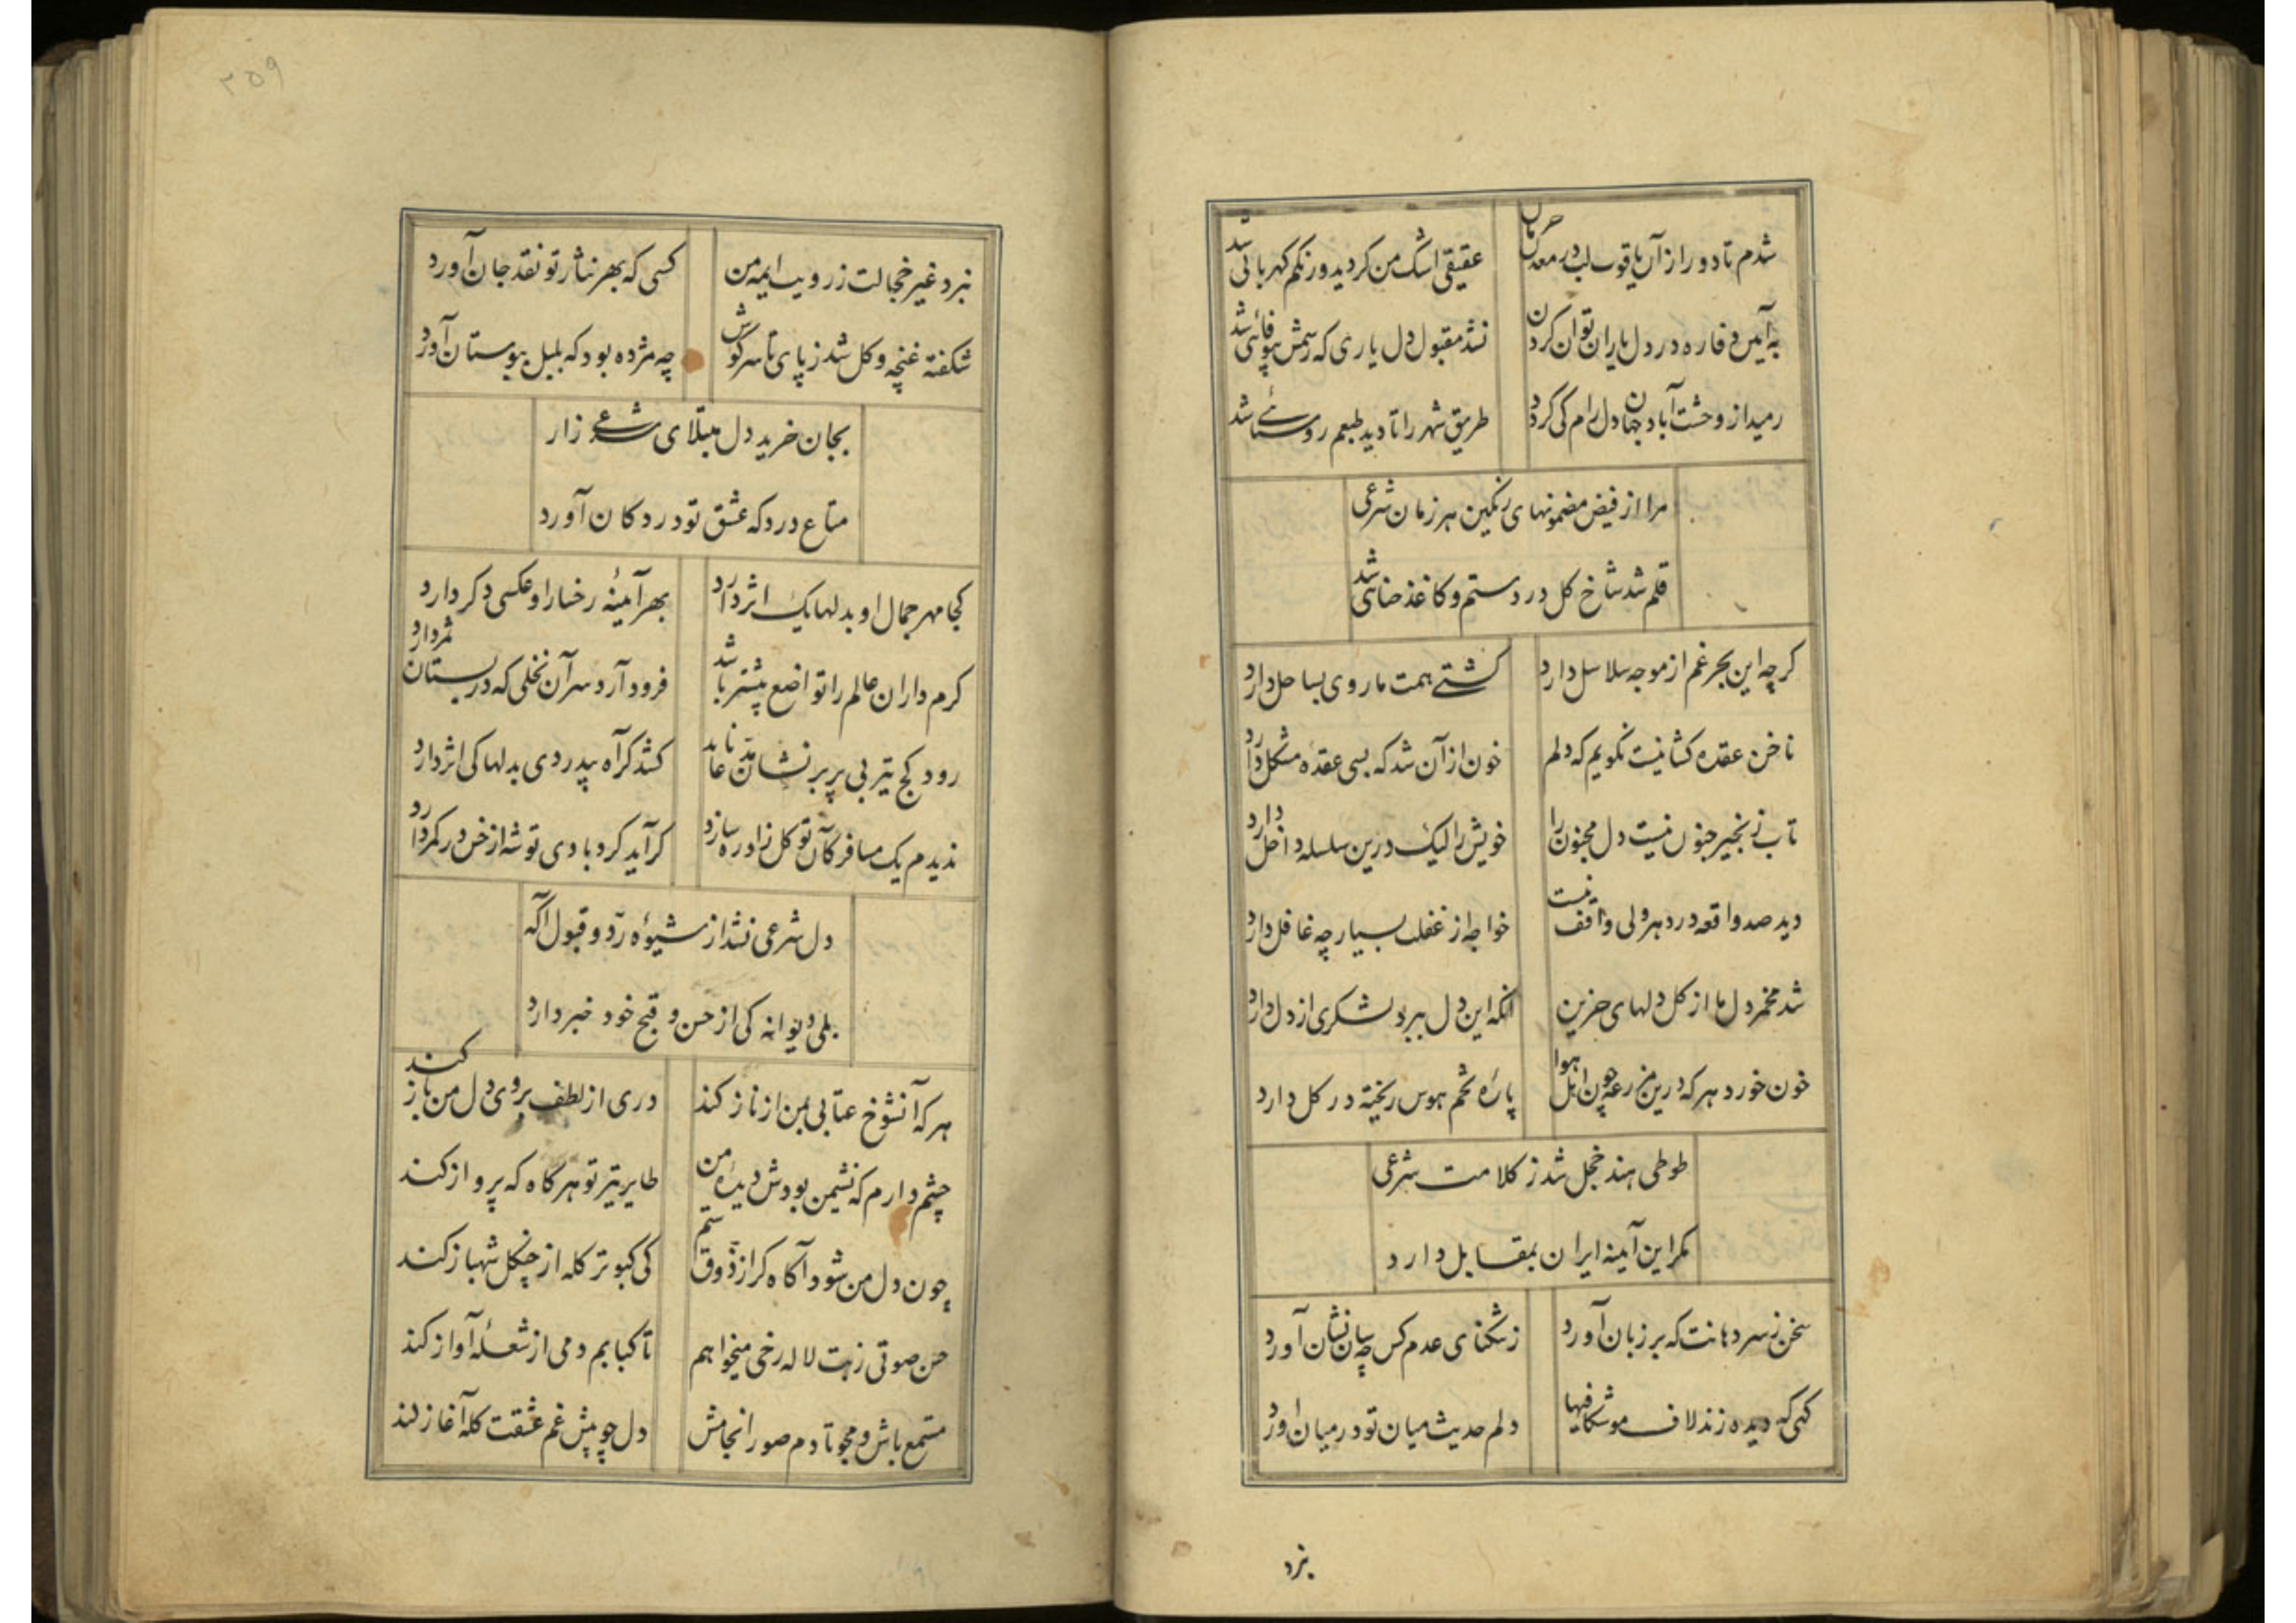 شدم تا دور از آن یاقوت لب در معدن حرمان
عقیقی اشک من کردید و رنکم کهربائی شد
به آیین وفا ره در دل یاران توان کردن
نشد مقبول دل یاری که رسمش بیوفائی شد
رمید از وحشت آباد جهان دل رام کی کردد
طریق شهر را تا دید طبعم روستائی شد
مرا از فیض مضمونهای رنکین هر زمان شرعی
قلم شد شاخ کل در دستم و کاغذ حنائی شد
کرچه این بحر غم از موجه سلاسل دارد
کشتی همت ما روی بساحل دارد
ناخن عقده کشا نیست نکویم که دلم
خون از آن شد که بسی عقدهٔ مشکل دارد
تاب زنجیر جنون نیست دل مجنون را
خویش را لیک درین سلسله داخل دارد
دید صد واقعه در دهر ولی واقف نیست
خواجه از غفلت بسیار چه غافل دارد
شد مخمر دل ما از کل دلهای حزین
آنکه این دل ببرد لشکری از دل دارد
خون خورد هر که درین مزرعه چون اهل هوا
پارهٔ تخم هوس ریخته در کل دارد
طوطی هند خجل شد ز کلامت شرعی
مکر این آینه ایران بمقابل دارد
سخن ز سر دهانت که بر زبان آورد
ز تنکنای عدم کس چه سان نشان آورد
کهی که دیده زند لاف موشکافیها
دلم حدیث میان تو در میان آورد
نبرد
۳۵۹
نبرد غیر خجالت ز رویت ایمه من
کسی که بهر نثار تو نقد جان آورد
شکفته غنچه و کل شد ز پای تا سر کوش
چه مژده بود که بلبل ببوستان آورد
بجان خرید دل مبتلای شرعی زار
متاع درد که عشق تو در دکان آورد
کجا مهر جمال او بدلها یک اثر دارد
بهر آمینهٔ رخسار او عکسی دکر دارد
کرم داران عالم را تواضع بیشتر باشد
فرود آرد سر آن نخلی که در بستان ثمر دارد
رود کج تیر بی پر بر نشان
کشد کر آه بیدردی بدلها کی اثر دارد
ندیدم یک مسافر کان توکل زاد ره سازد
کر آید کردبادی توشه از خس در کمر دارد
دل شرعی نشد از شیوهٔ رد و قبول آکه
بلی دیوانه کی از حسن و قبح خود خبر دارد
هر که آنشوخ عتابی بمن از ناز کند
دری از لطف بروی دل من باز کند
چشم دارم که نشیمن بودش دیدهٔ من
طایر تیر تو هر گاه که پرواز کند
چون دل من شود آکاه کر از ذوق ستم
کی کبوتر کله از چنکل شهباز کند
حسن صوتی ز بت لاله رخی میخواهم
تا کبابم دمی از شعلهٔ آواز کند
مستمع باش و مجو تا دم صور انجامش
دل چو پیش غم عشقت کله آغاز کند